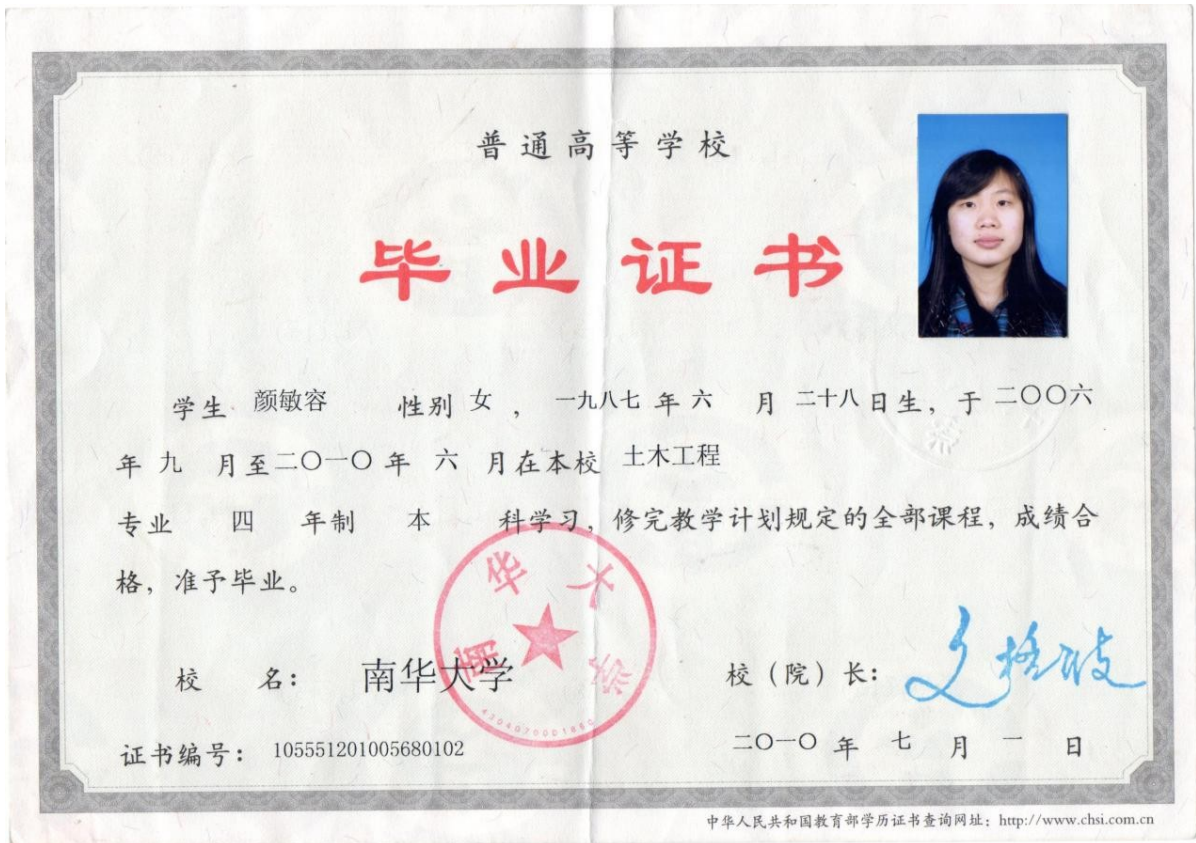 普通高等学校
毕业证书
学生 颜敏容 性别 女 ， 一九八七 年 六 月 二十八 日生，于 二〇〇六
年 九 月至 二〇一〇 年 六 月在本校 土木工程
专业 四 年制 本 科学习，修完教学计划规定的全部课程，成绩合
格，准予毕业。
南华大学
校 名： 南华大学
校（院）长：
证书编号： 105551201005680102
二〇一〇 年 七 月 一 日
中华人民共和国教育部学历证书查询网址：http://www.chsi.com.cn